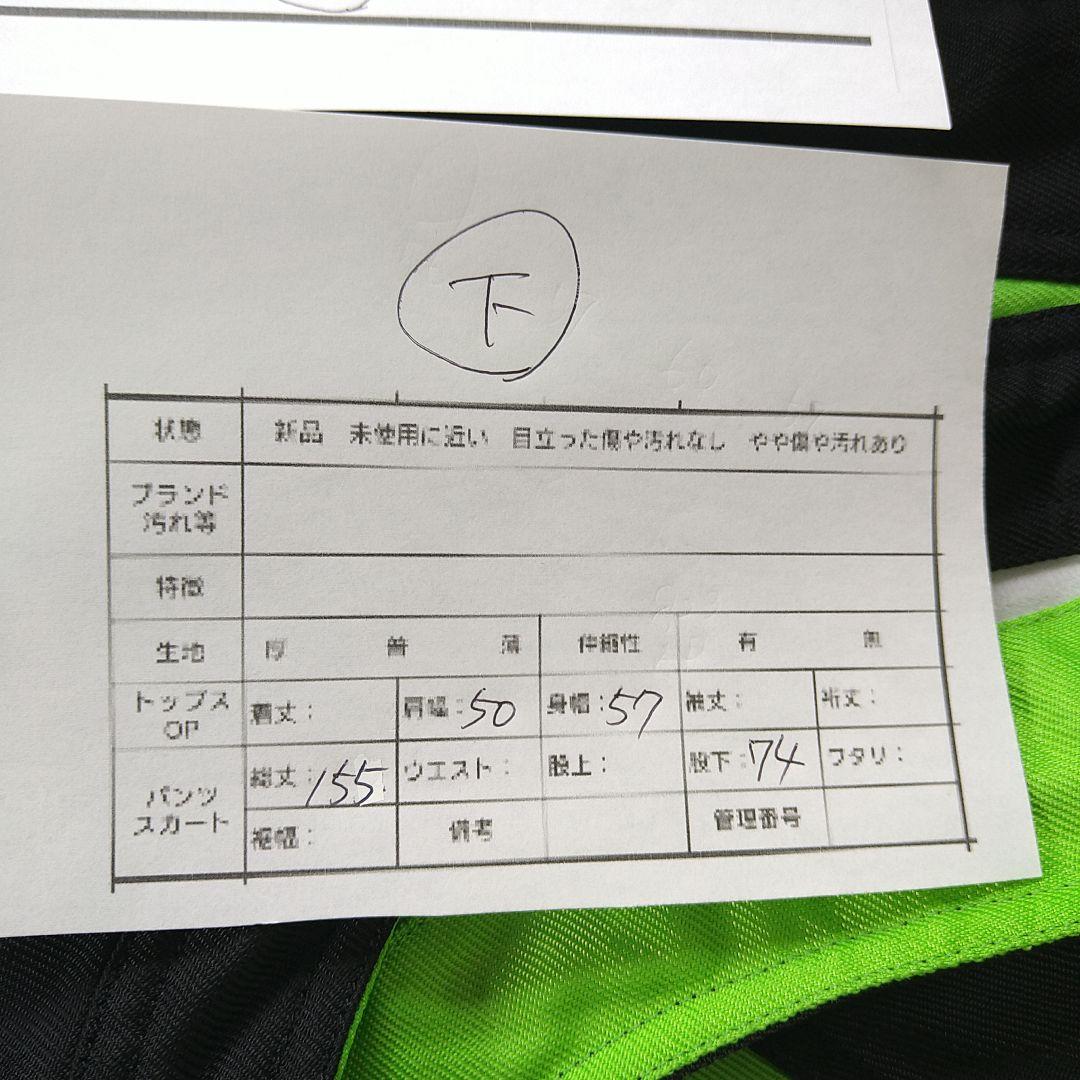 下
状態 新品 未使用に近い 目立った傷や汚れなし やや傷や汚れあり
ブランド
汚れ等
特徴
生地 厚 普 薄 伸縮性 有 無
トップス
OP
着丈: 肩幅:50 身幅:57 袖丈: 裄丈:
パンツ
スカート
総丈:155 ウエスト: 股上: 股下:74 ワタリ:
裾幅: 備考 管理番号